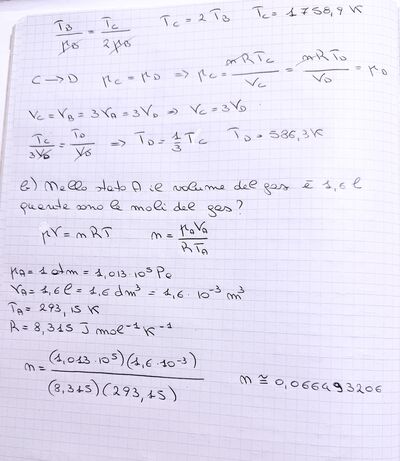 T_B/p_B = T_C/2p_B T_C = 2T_B T_C = 1758,9 K
C → D p_C = p_D ⇒ p_C = nRT_C/V_C = nRT_D/V_D = p_D
V_C = V_B = 3V_A = 3V_D ⇒ V_C = 3V_D
T_C/3V_D = T_D/V_D ⇒ T_D = 1/3 T_C T_D = 586,3 K
b) Nello stato A il volume del gas è 1,6 l
quante sono le moli del gas?
pV = nRT n = p_A V_A/RT_A
p_A = 1 atm = 1,013 · 10⁵ Pa
V_A = 1,6 l = 1,6 dm³ = 1,6 · 10⁻³ m³
T_A = 293,15 K
R = 8,315 J mol⁻¹ K⁻¹
n = (1,013 · 10⁵)(1,6 · 10⁻³)/(8,315)(293,15) n ≅ 0,066493206